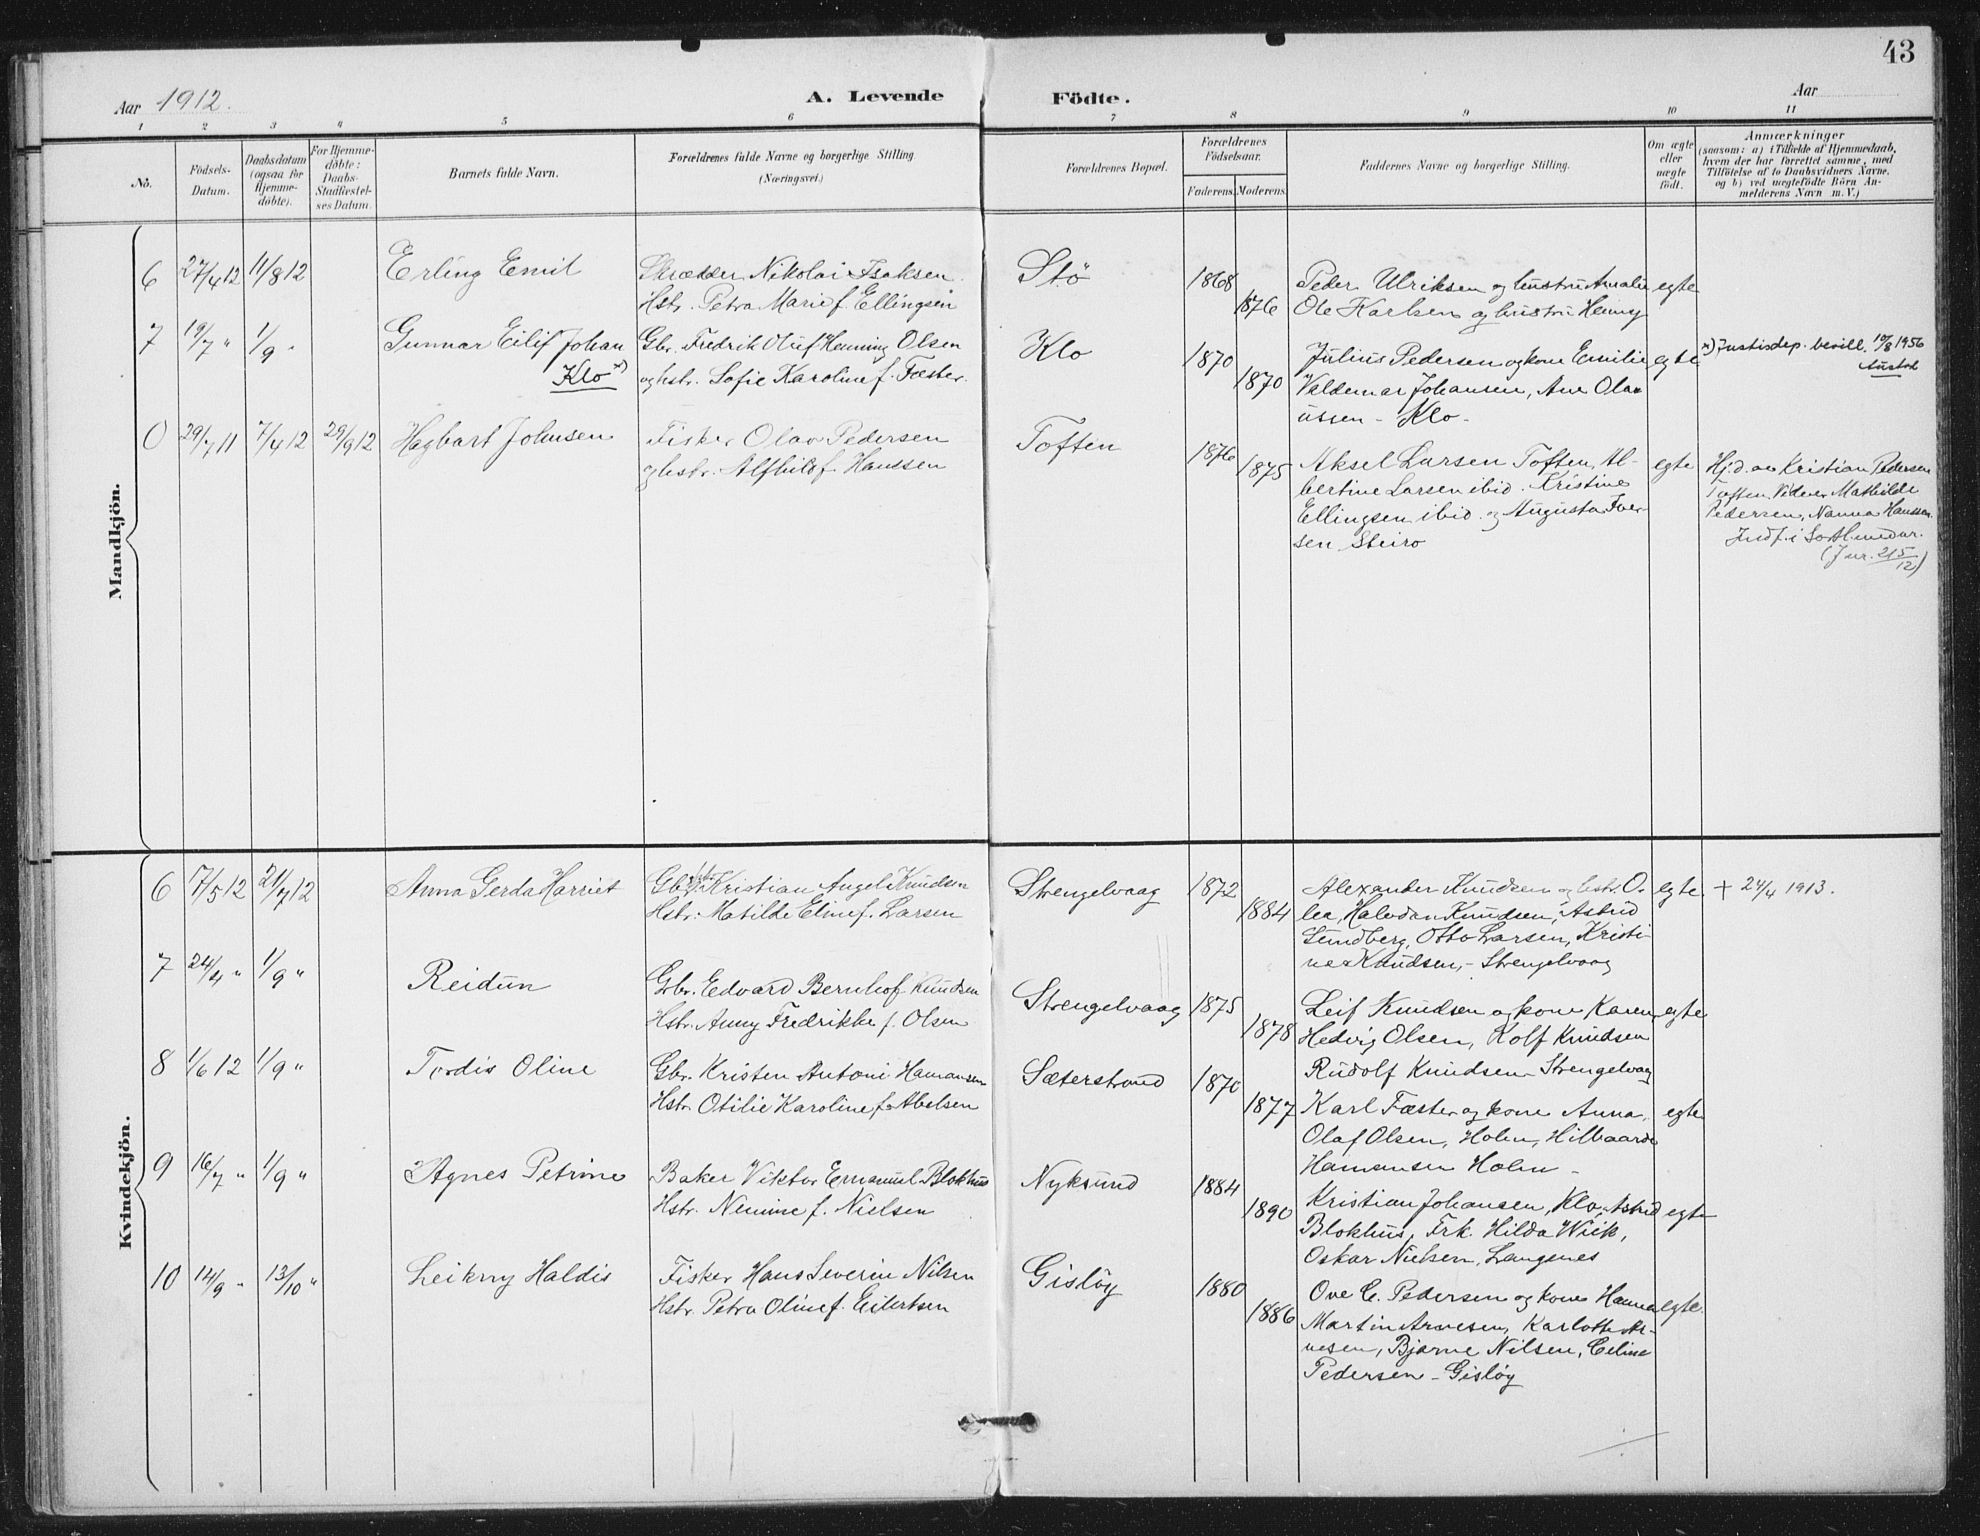 43
Aar 1912. A. Levende Födte. Aar
1 2 3 4 5 6 7 8 9 10 11
No. Födsels-Datum. Daabsdatum (ogsaa for Hjemme-döbte). For Hjemme-döbte: Daabs-Stadfæstel-ses Datum. Barnets fulde Navn. Forældrenes fulde Navne og borgerlige Stilling. (Næringsvei.) Forældrenes Bopæl. Forældrenes Födselsaar. Faderens. Moderens. Faddernes Navne og borgerlige Stilling. Om ægte eller uægte födt. Anmærkninger
(saasom: a) i Tilfælde af Hjemmedaab,
hvem der har forrettet samme, med
Tilföielse af to Daabsvidners Navne,
og b) ved uægtefödte Börn An-
melderens Navn m. V.)
Mandkjön.
6 27/4 12 11/8 12 Erling Emil Skrædder Nikolai Isaksen. Stö 1868 Peder Ulriksen og hustru Amalie egte
Hstr. Petra Marie f. Ellingsen 1876 Ole Karlsen og hustru Henny
7 19/7 " 1/9 " Gunnar Eilif Johan Gbr. Fredrik Oluf Henning Olsen Klo 1870 Julius Pedersen og kone Emilie egte x) Justisdep. bevill. 10/8 1956
Klo x) og hstr. Sofie Karoline f. Fæster. 1870 Valdemar Johansen, Ane Ola-
ussen - Klo -
0 29/7 11 7/4 12 29/9 12 Hagbart Johnsen Fisker Olav Pedersen Toften 1876 Aksel Larsen Toften, Al- egte Hj.d. av Kristian Pedersen
og hstr. Alfhild f. Hanssen 1875 bertine Larsen ibid. Kristine Toften. Vidner Mathilde
Ellingsen ibid. og Augusta Iver- Pedersen, Nanna Hanssen.
sen Steiro Indf. i
(J nr. 215/12)
Kvindekjön.
6 7/5 12 21/7 12 Anna Gerda Harriet Gbr. Kristian Angel Knudsen Strengelvaag 1872 Alexander Knudsen og hstr. O- egte + 24/4 1913.
Hstr. Matilde Eline f. Larsen 1884 lea, Halvdan Knudsen, Astrid
Sundberg, Otto Larsen, Kristi-
ne Knudsen, - Strengelvaag
7 24/4 " 1/9 " Reidun Gbr. Edvard Bernhof Knudsen Strengelvaag 1875 Leif Knudsen og kone Karen egte
Hstr. Anny Fredrikke f. Olsen 1878 Hedvig Olsen, Rolf Knudsen
Rudolf Knudsen - Strengelvaag
8 1/6 12 1/9 " Tordis Oline Gbr. Kristen Antoni Hamansen Sæterstrand 1870
Hstr. Otilie Karoline f. Abelsen 1877 Karl Fæster og kone Anna, egte
Olaf Olsen, Holm, Hilvaarda
Hamansen Holm -
9 16/7 " 1/9 " Agnes Petrine Baker Viktor Emanuel Blokhus Nyksund 1884 Kristian Johansen, Klo, Astrid egte
Hstr. Nemine f. Nielsen 1890 Blokhus, Frk. Hilda Wiik,
Oskar Nielsen, Langenes
10 14/9 " 13/10 " Leikny Haldis Fisker Hans Severin Nilsen Gislöy 1880 Ove E. Pedersen og kone Hanna egte.
Hstr. Petra Oline f. Eilertsen 1886 Martin Arnesen, Karlotte Ar-
nesen, Bjarne Nilsen, Celine
Pedersen - Gislöy